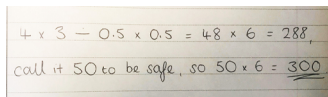 4 x 3 - 0.5 x 0.5 = 48 x 6 = 288,
call it 50 to be safe, so 50 x 6 = 300